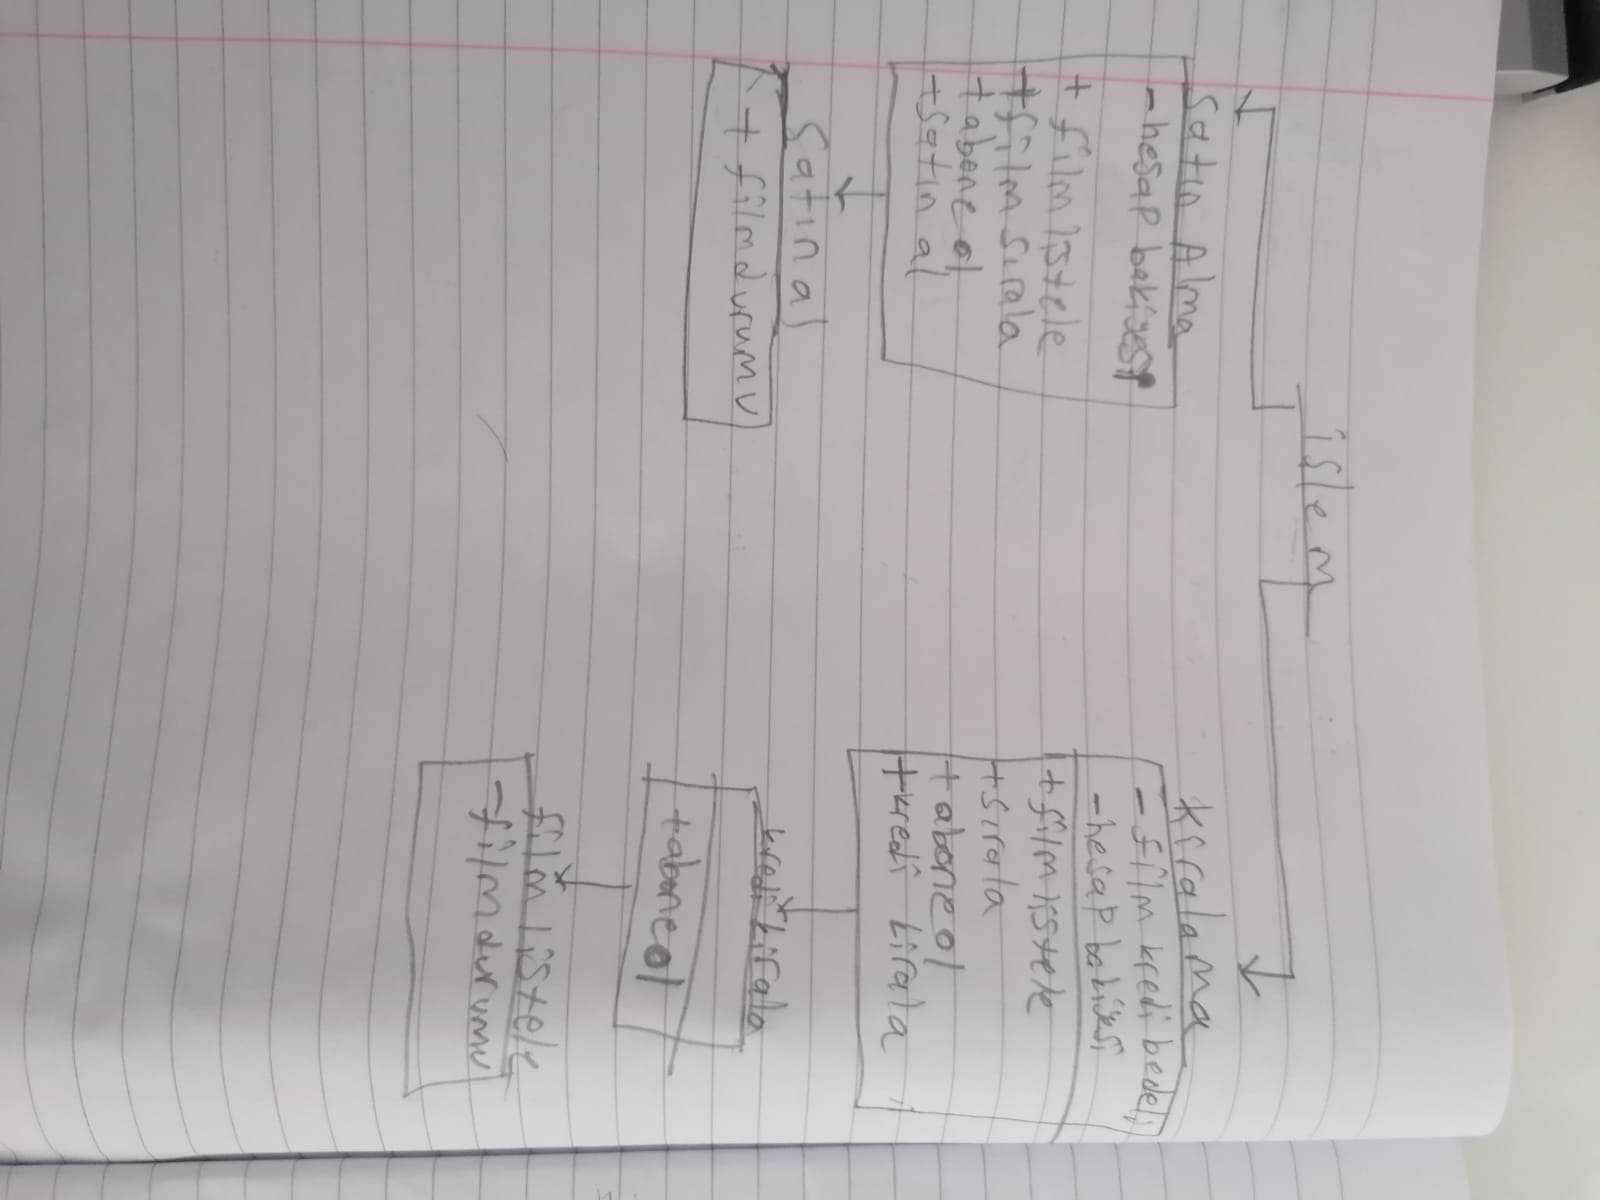 işlem
Satın Alma
- hesap bakiyesi
+ film listele
+ film sırala
+ abone ol
+ satın al
Satın al
+ film durumu
kiralama
- film kredi bedeli
- hesap bakiyesi
+ film listele
+ sırala
+ abone ol
+ kredi kirala
kredi kirala
+ abone ol
film listele
- film durumu